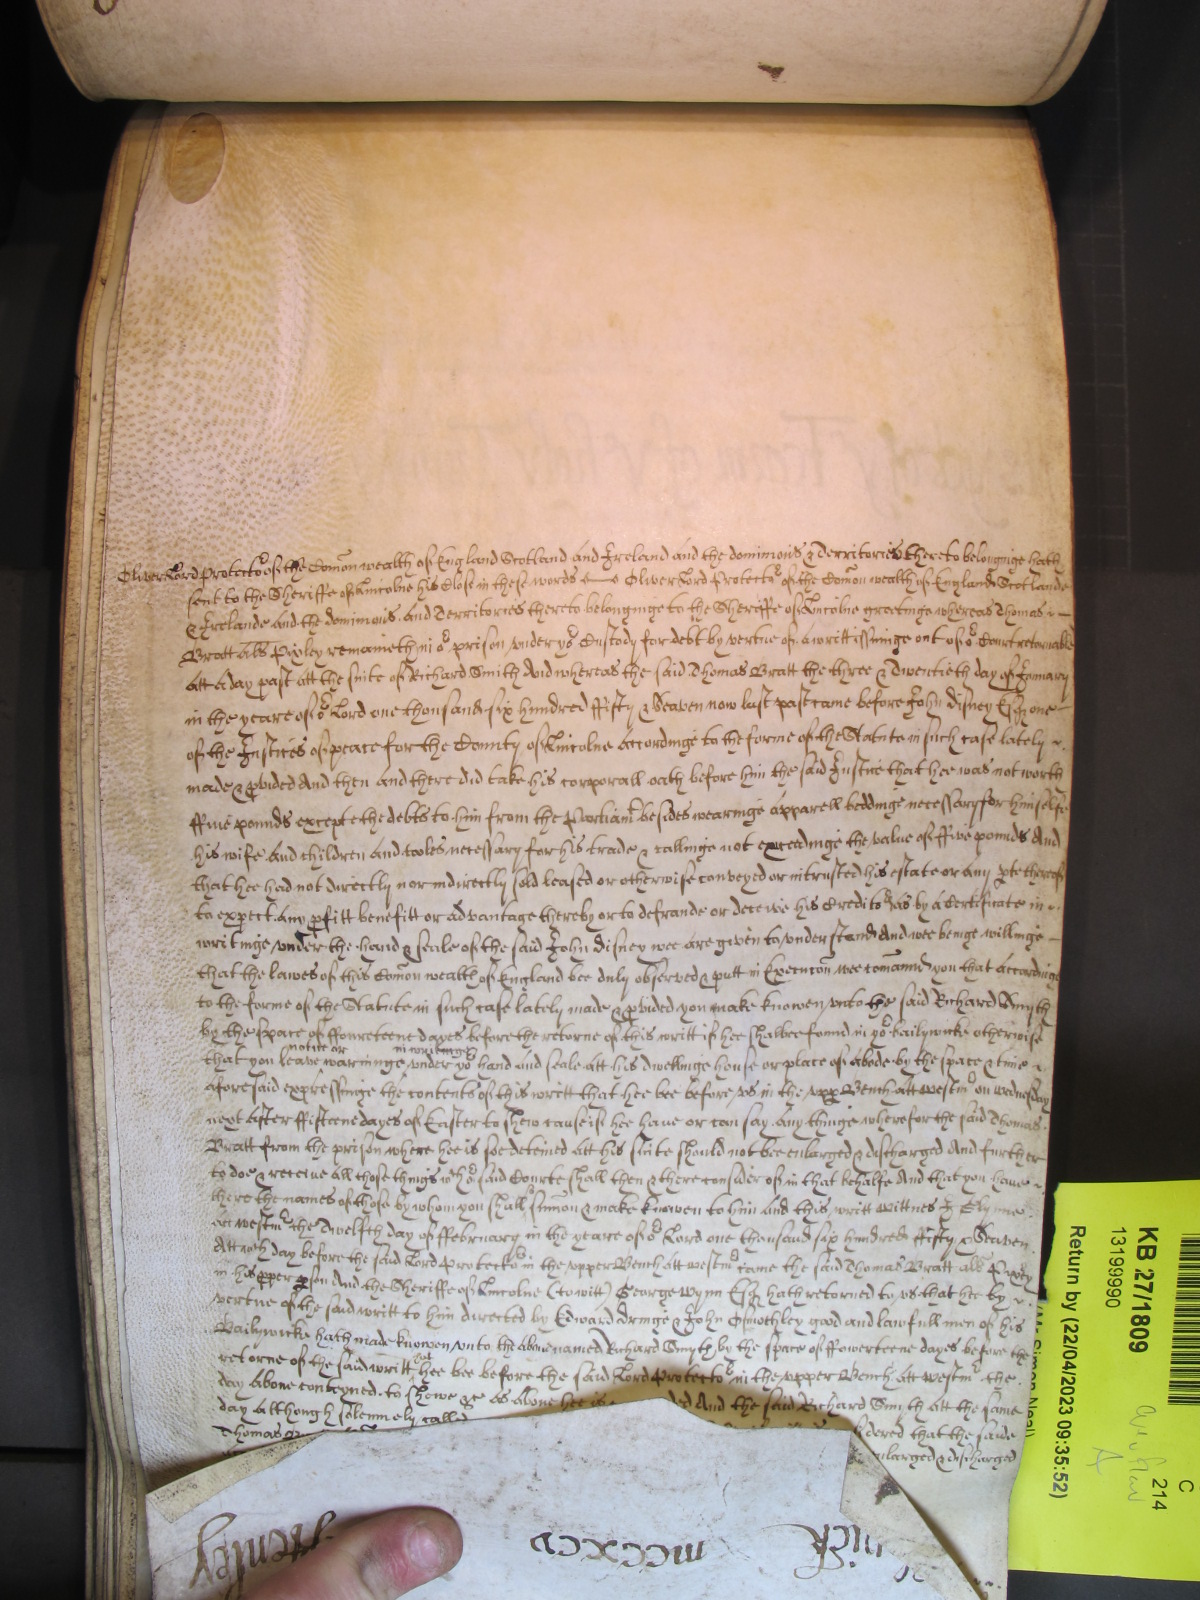 Oliver Lord Protector of the Comon wealth of England Scotland and Ireland and the dominions & Territories thereto belonginge hath
sent to the Sheriffe of Lincolne his Close in these words Oliver Lord Protector of the Comon wealth of England Scotlande
& Irelande and the dominions And Territories thereto belonginge to the Sheriffe of Lincolne greetinge whereas Thomas
Bratt als Pixley remaineth in or prison under yor Custody for debt by vertue of a writt issuinge out of or Court retornable
att a day past att the suite of Richard Smith And whereas the said Thomas Bratt the three & Twentieth day of January
in the yeare of or Lord one thousand six hundred fifty & Seaven now last past came before John Disney Esqr one
of the Justices of peace for the County of Lincolne Accordinge to the forme of the Statute in such case lately
made & pvided And then and there did take his corporall oath before him the said Justice that hee was not worth
ffive pounds except the debts to him from the Parliamt besides wearinge apparell beddinge necessary for himselfe
his wife And children and tooles necessary for his trade & callinge not exceedinge the value of ffive pounds And
that hee had not directly nor indirectly sold leased or otherwise conveyed or intrusted his estate or any pte thereof
to expect any pfitt benefitt or advantage thereby or to defraude or deceive his Creditors As by a Certificate in
writinge under the hand & seale of the said John Disney wee are given to understand And wee beinge willinge
that the lawes of this Comon wealth of England bee duly observed & putt in Execucon wee comannd you that accordinge
to the forme of the Statute in such case lately made & pvided you make knowen unto the said Richard Smyth
by the space of ffoureteene dayes before the retorne of this writt if hee shalbee found in yor bailywicke otherwise
notice or in writinge
that you leave warninge under yor hand and seale att his dwellinge house or place of abode by the space & time
aforesaid expressinge the contents of this writt that hee bee before us in the upp Bench att Westmr on wednesday
next after fifteene dayes of Easter to shew cause if hee have or can say any thinge wherefore the said Thomas
Bratt from the prison where hee is soe deteined att his suite should not bee enlarged & discharged And further
to doe & receive all those things wch or said Courte shall then & there consider of in that behalfe And that you have
there the names of those by whom you shall sumon & make knowen to him and this writt wittnes J Glynne
att westmr the Twelfth day of ffebruary in the yeare of or Lord one thousand six hundred ffifty & Seaven
Att wch day before the said Lord Protector in the upper Bench att westmr came the said Thomas Bratt als Pixley
in his pper pson And the Sheriffe of Lincolne (to witt) George Wynn Esqr hath retorned to us that hee by
vertue of the said writt to him directed by Edward Dringe & John Smothley good and lawfull men of his
Bailywicke hath made knowen unto the above named Richard Smyth by the space of ffowerteene dayes before the
retorne of the said writt that hee bee before the said Lord Protector in the upper Bench att westmr the
day above conteyned to shewe &c as above hee is ded And the said Richard Smyth att the same
day although solemnely called dered that the saide
Thomas enlarged & discharged
Henley
mccccxxxo
KB 27/1809
13199990
C
214
Return by (22/04/2023 09:35:52)
(Mr Simon Neal)